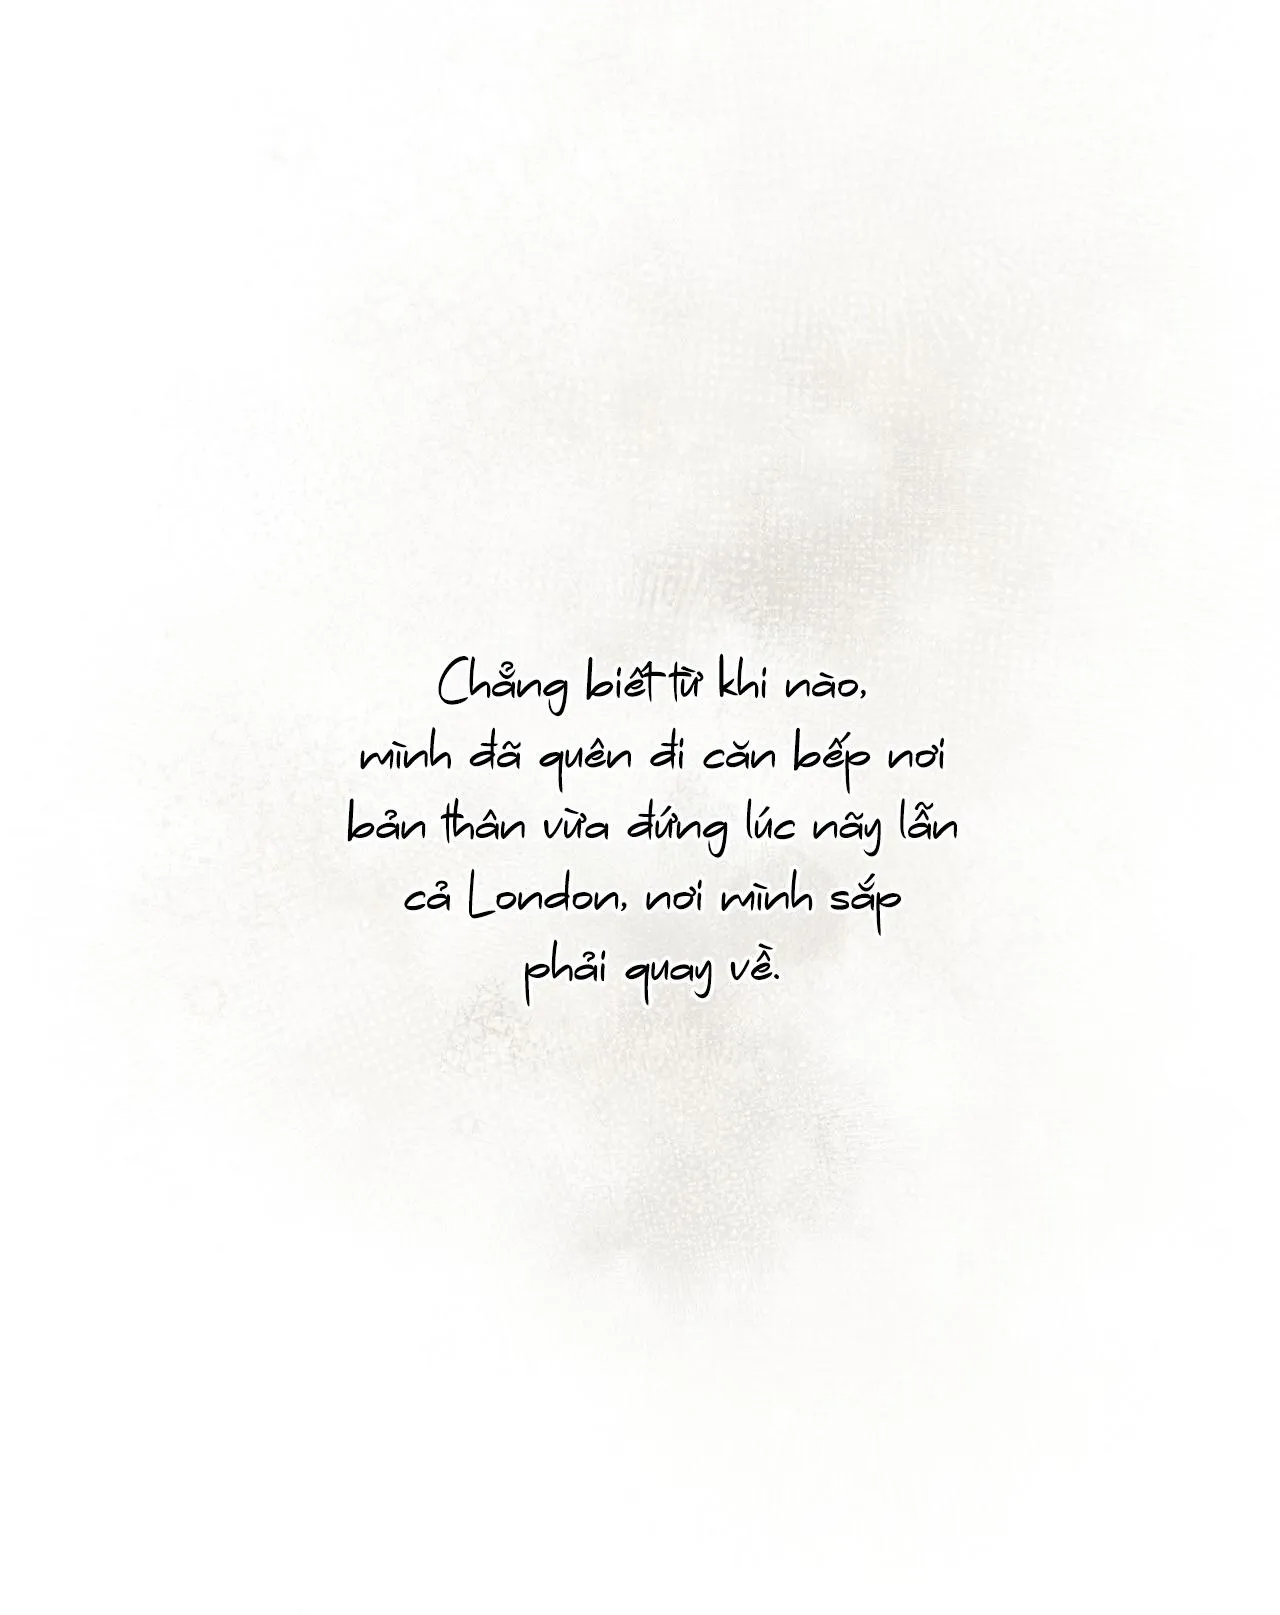 Chẳng biết từ khi nào,
mình đã quên đi căn bếp nơi
bản thân vừa đứng lúc nãy lẫn
cả London, nơi mình sắp
phải quay về.